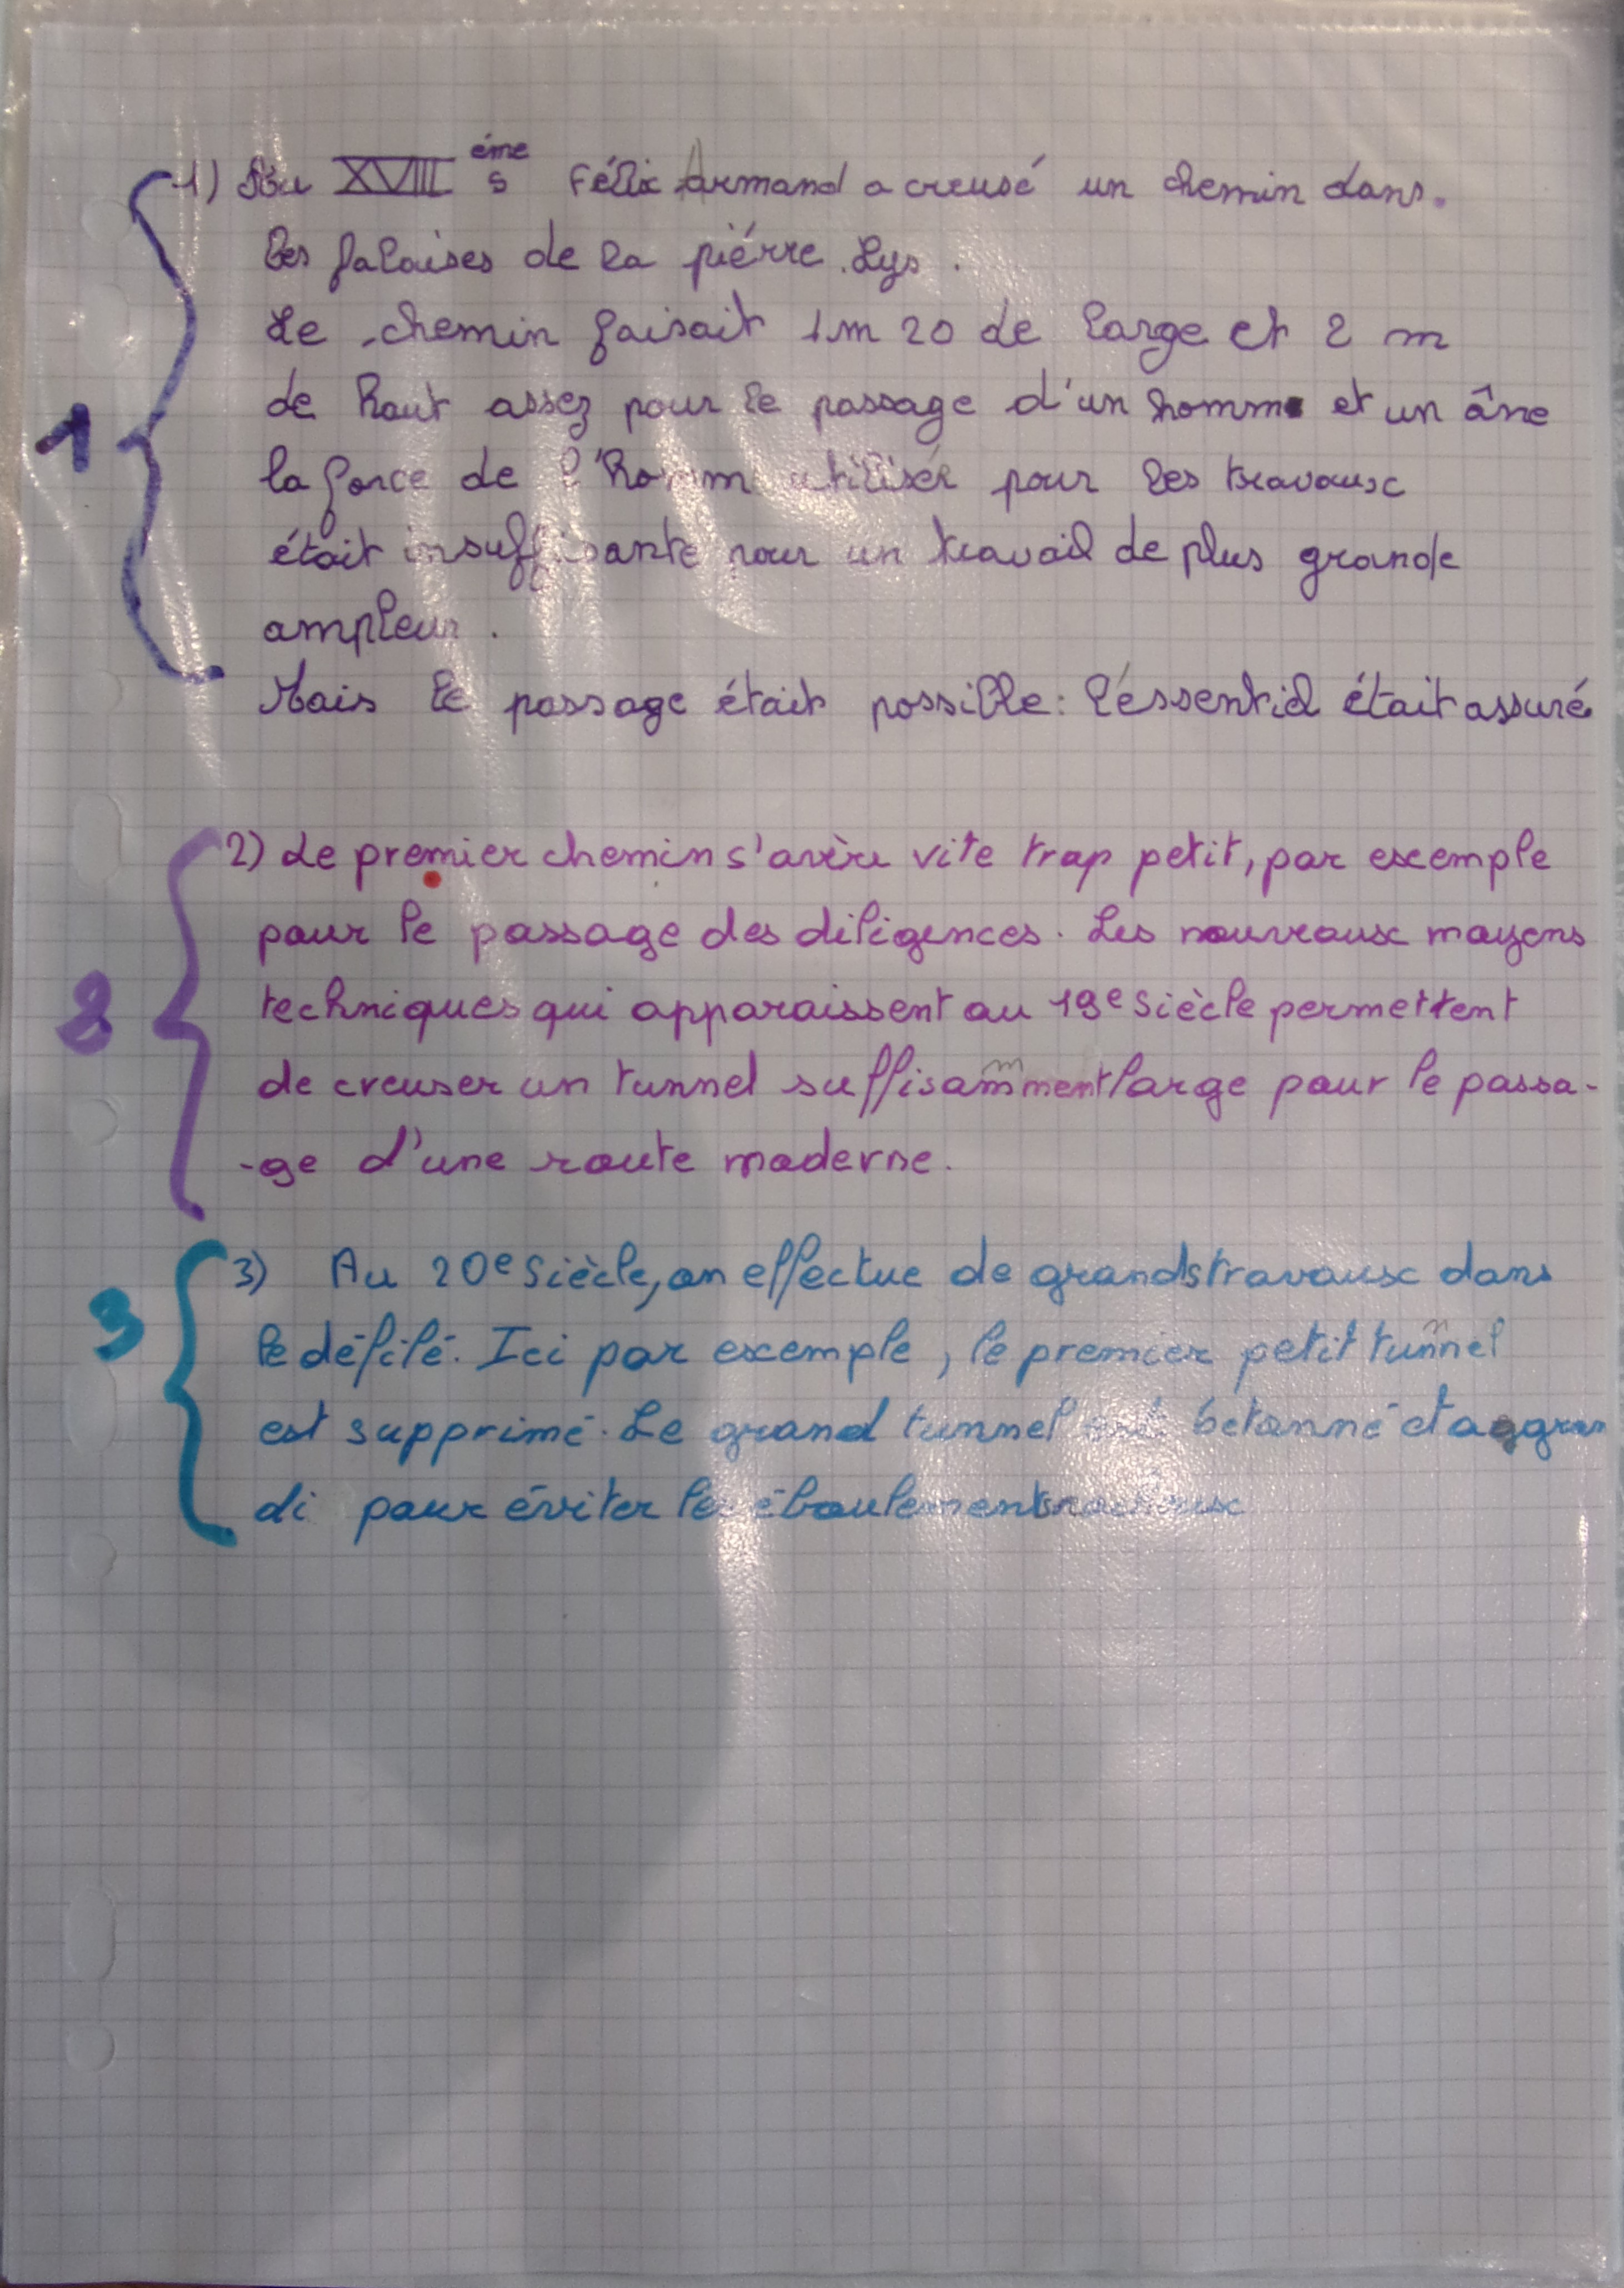 1) Au XVIII ème s Félix Armand a creusé un chemin dans.
les falaises de la piérre. Lys.
Le chemin faisait 1m 20 de large et 2 m
de haut assez pour le passage d'un homme et un âne
la force de l'homm utiliser pour les travaux
était insuffisante pour un travail de plus grande
ampleur.
Mais le passage était possible: l'éssentiel était assuré
1
2) Le premier chemin s'avère vite trop petit, par exemple
pour le passage des diligences. Les nouveaux moyens
techniques qui apparaissent au 19e siècle permettent
de creuser un tunnel suffisamment large pour le passa-
-ge d'une route moderne.
2
3) Au 20e siècle, on effectue de grands travaux dans
le défilé. Ici par exemple, le premier petit tunnel
est supprimé. Le grand tunnel est betonné et aggran
di pour éviter les éboulements
3